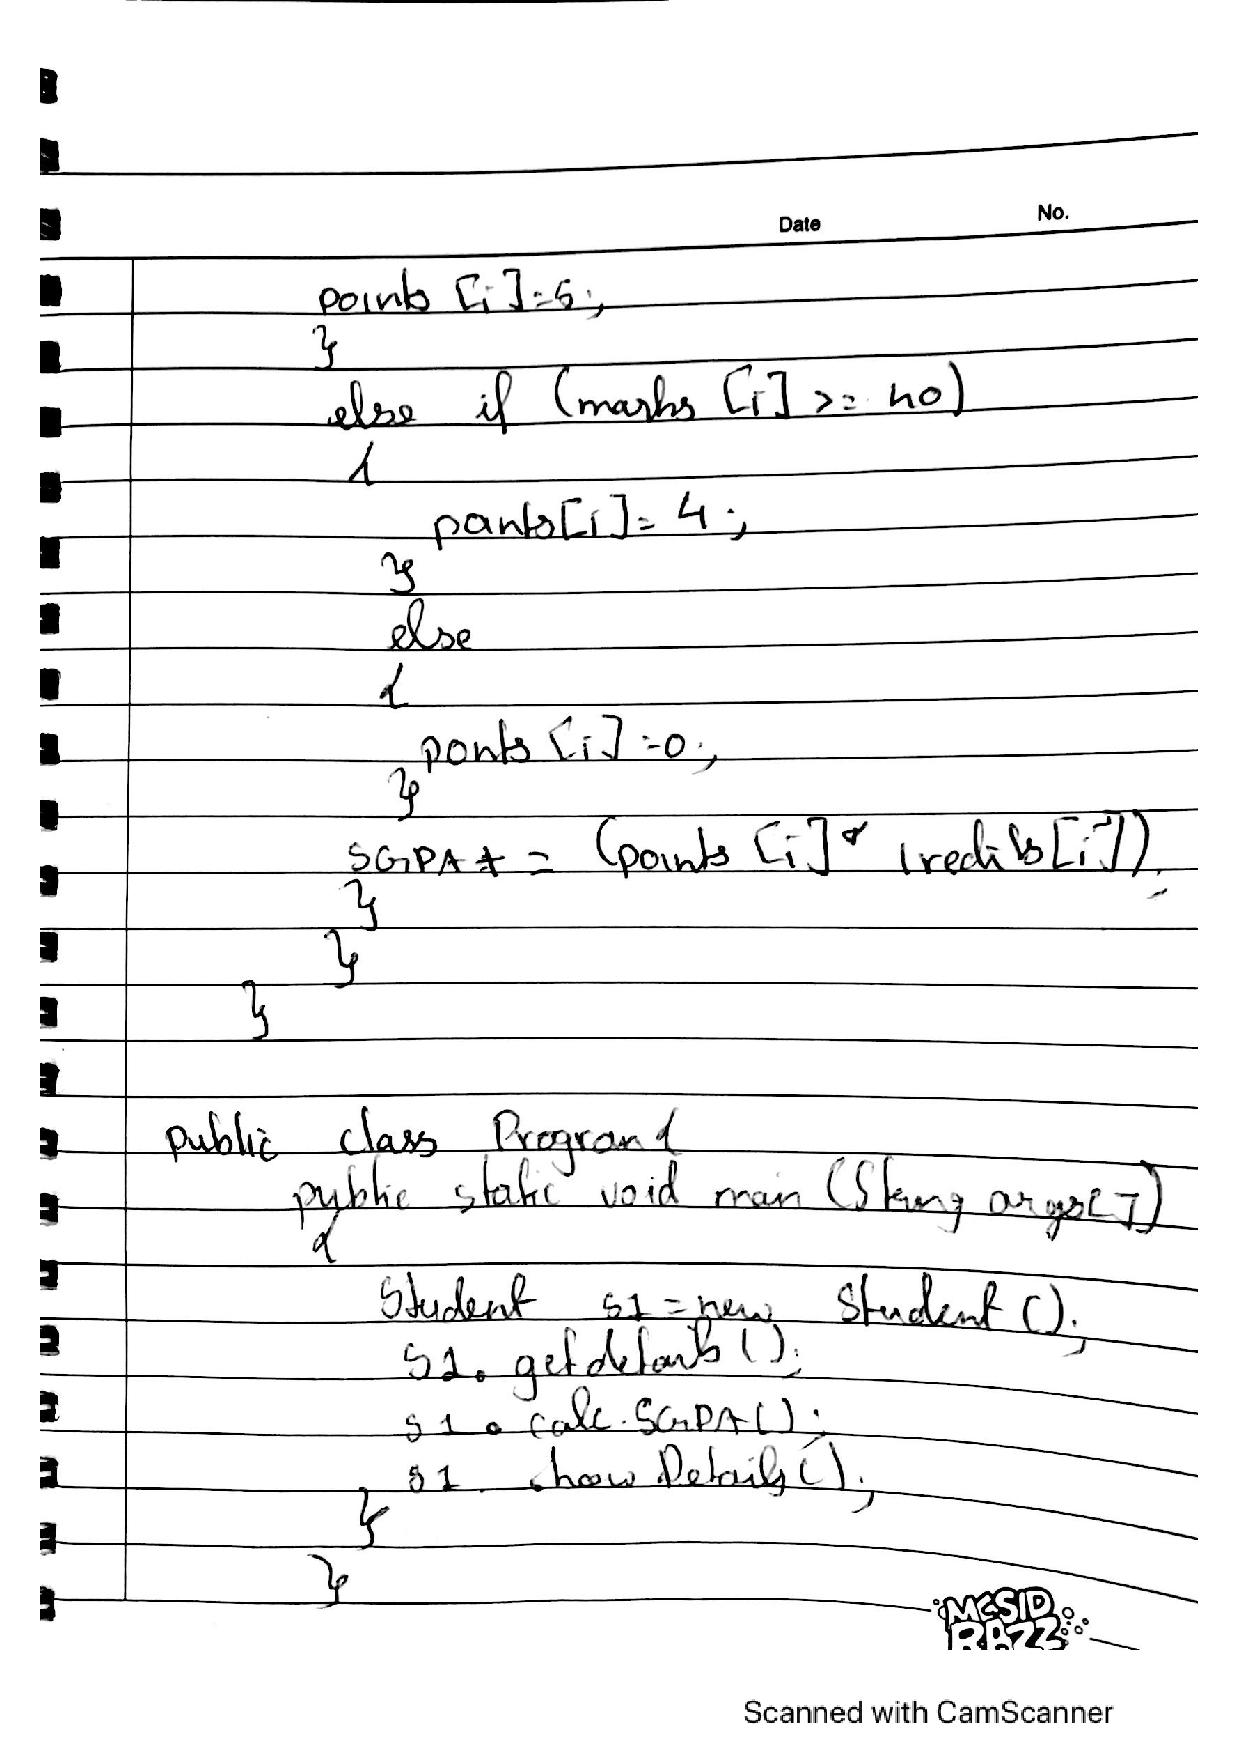 Date No.
points [i]=5;
}
else if (marks [i] >= 40)
{
points[i]= 4;
}
else
{
ponts [i]=0;
}
SGPA += (points [i] * credits[i]);
}
}
}
public class Program {
public static void main (String args[])
{
Student s1 = new Student ();
s1. getdetails ();
s1. calc.SGPA();
s1. showDetails();
}
}
MCSID
RAZZ
Scanned with CamScanner